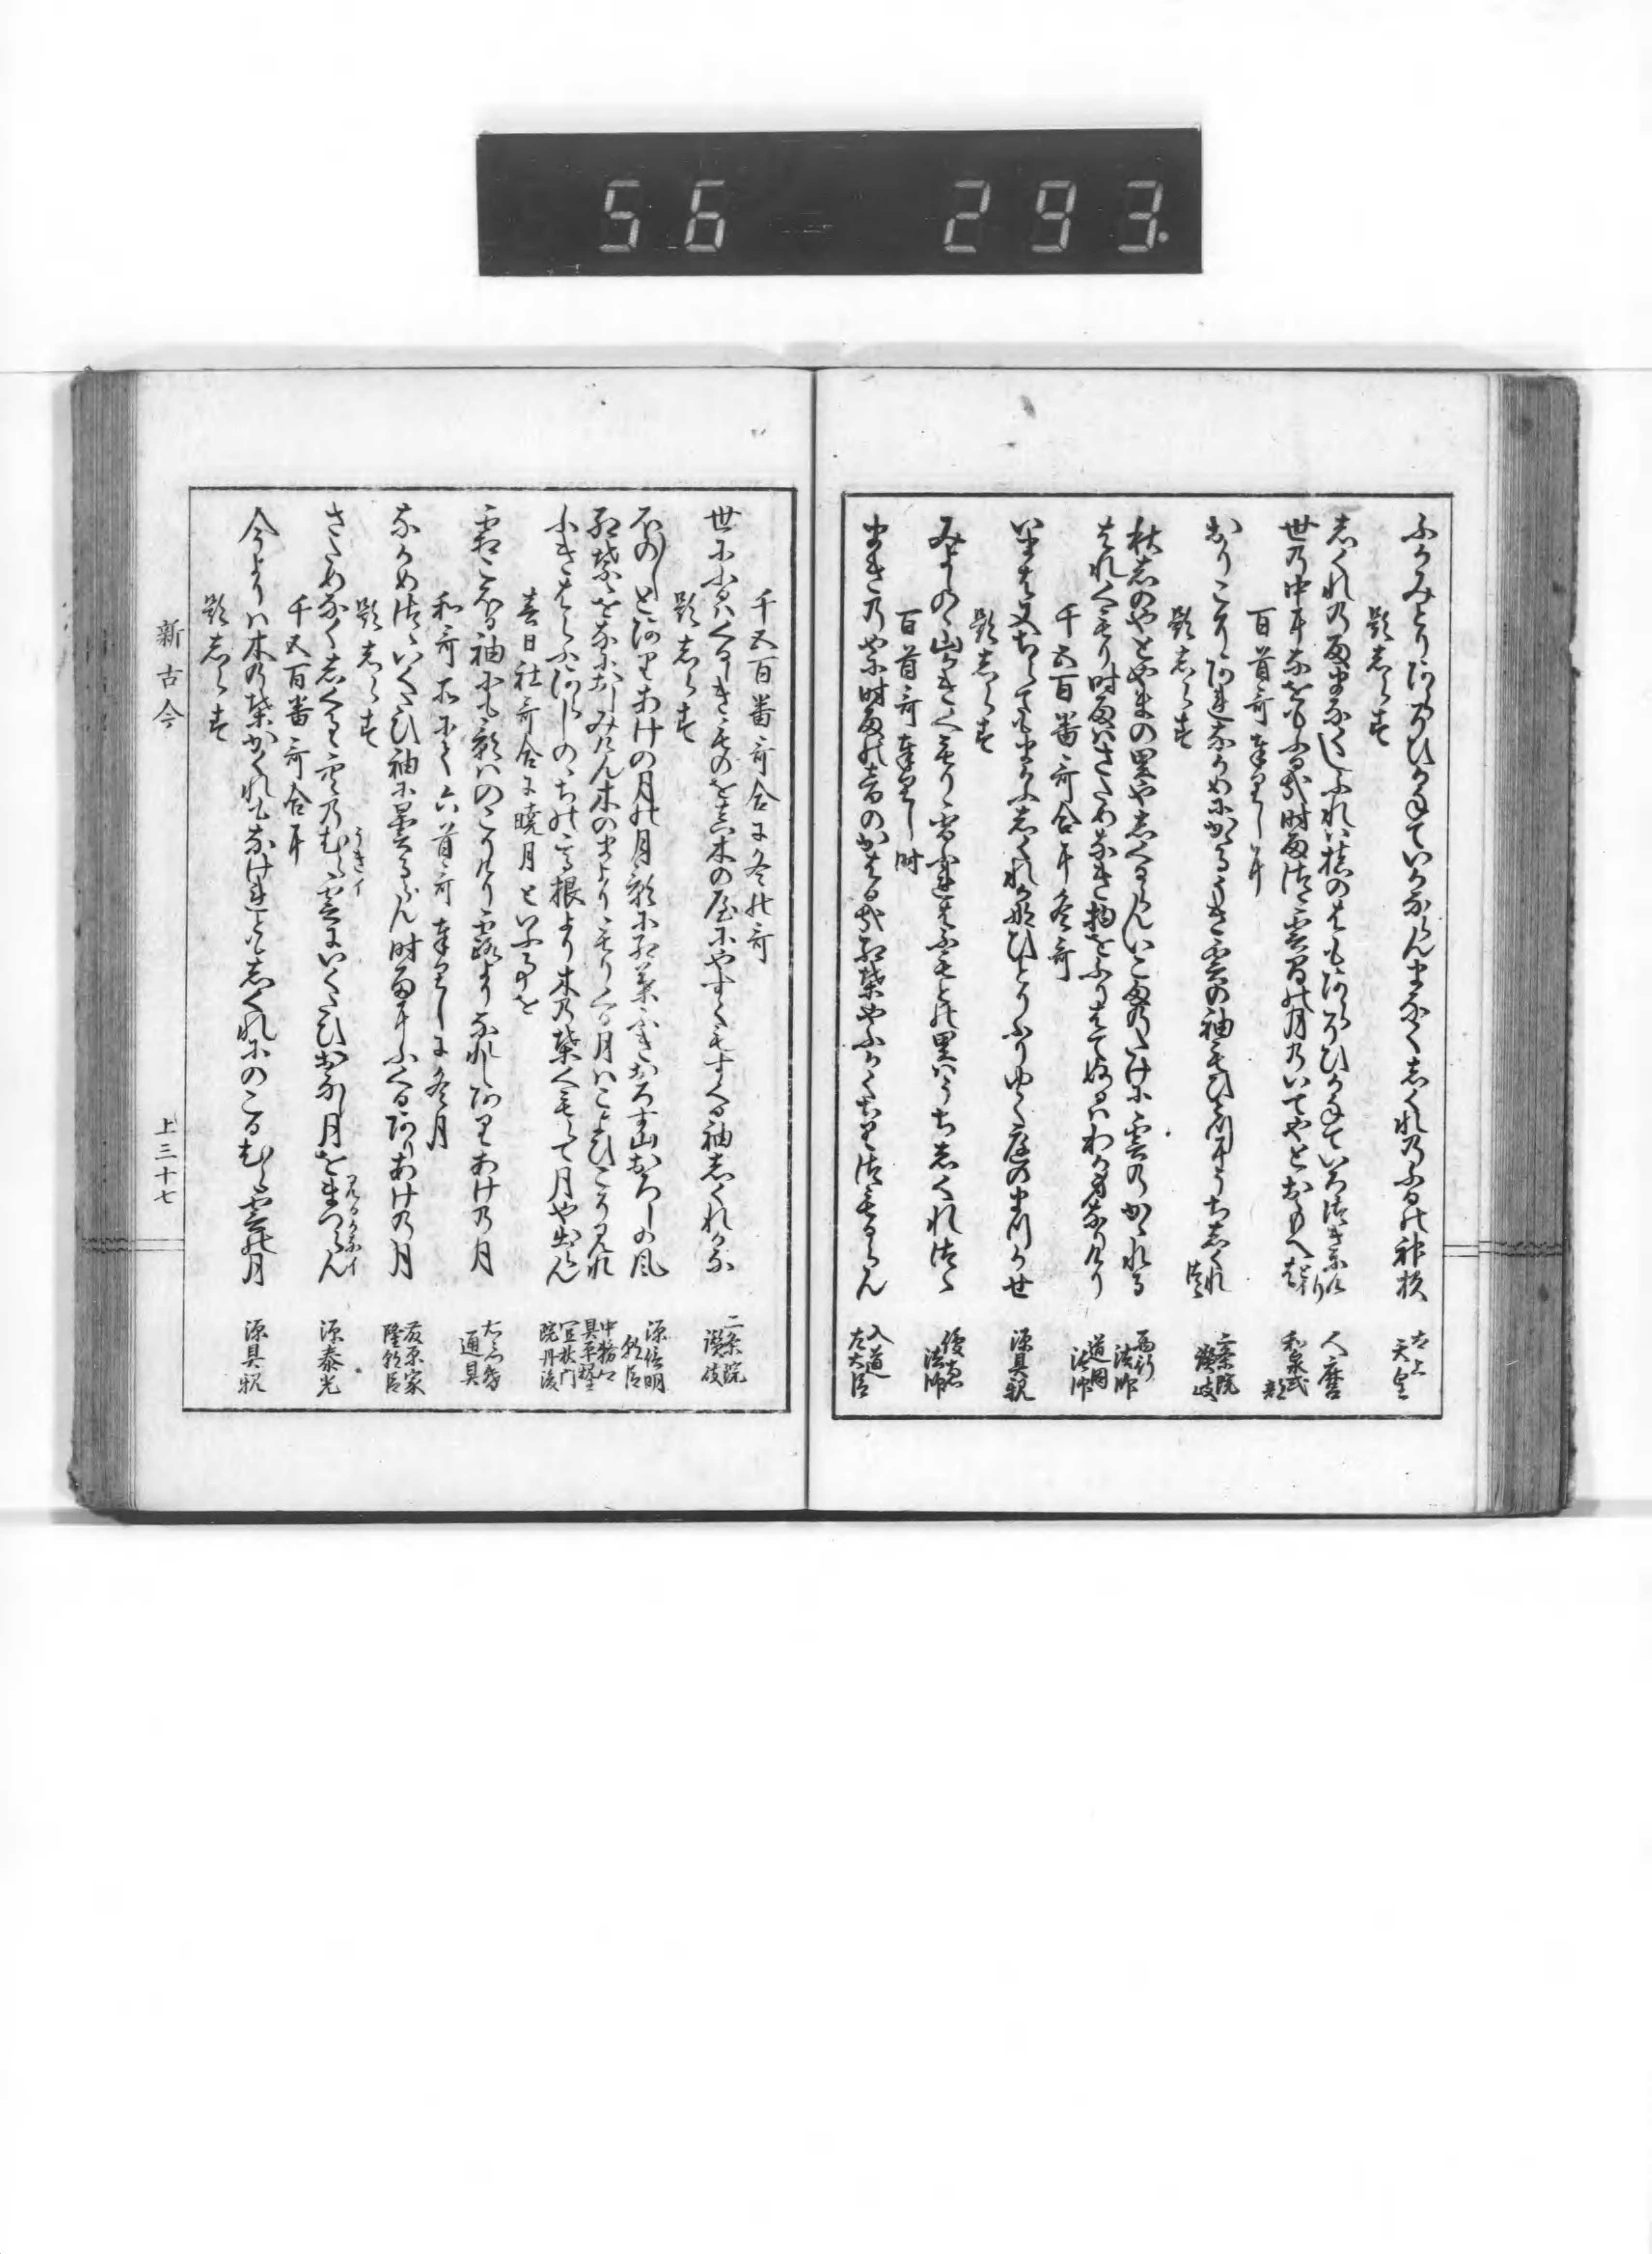 56 293.
ふかみとりあらそひかねていかならんまなくしくれのふるの神杉 太上天皇
題しらす
しくれの雨まなくしふれは槙のはもあらそひかねていろつきにけり 人麿
世の中になをもふるかな時雨つゝ雲間の月のいてやとおもへは 和泉式部
百首哥奉りしに
おりこそあれなかめにかゝるうき雲の袖もひとつにうちしくれつゝ 二条院讃岐
題しらす
秋しのやとやまの里やしくるらんいこまのたけに雲のかゝれる 西行法師
はれくもり時雨はさためなき物をふりはてぬるはわか身なりけり 道因法師
千五百番哥合に冬哥
いまは又ちらてもまかふしくれかなひとりふりゆく庭のまつかせ 源具親
題しらす
みよしのゝ山かきくもり雪ふれはふもとの里はうちしくれつゝ 俊恵法師
百首哥奉りし時
まきのやに時雨の音のかはるかな紅葉やふかくちりつもるらん 入道左大臣
千五百番哥合に冬の哥
世にふるはくるしきものを真木の屋にやすくもすくる初しくれかな 二条院讃岐
題しらす
ほの〳〵とありあけの月の月影に紅葉ふきおろす山おろしの風 源信明朝臣
紅葉をなにおしみけん木のまよりもりくる月はこよひこそみれ 中務卿具平親王
ふきはらふあらしのゝちの高根より木の葉くもらて月や出らん 宜秋門院丹後
春日社哥合に暁月といふ事を
霜こほる袖にも影はのこりけり露よりなれしありあけの月 右衛門督通具
和哥所にて六首哥奉りしに冬月
なかめつゝいくたひ袖に曇るらん時雨にふくるありあけの月 藤原家隆朝臣
題しらす
さためなくしくるゝ空のむら雲にいくたひおなし月をまつらん 源泰光
千五百番哥合に
今よりは木の葉かくれもなけれともしくれにのこるむら雲の月 源具親
題しらす
新古今 上三十七